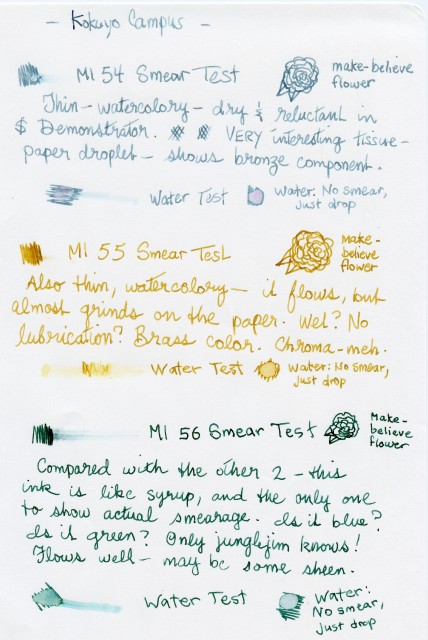 - Kokuyo Campus -
MI 54 Smear Test
make-believe
flower
Thin - watercolory - dry & reluctant in
$ Demonstrator. VERY interesting tissue-
paper droplet - shows bronze component.
Water Test
Water: No smear,
just drop
MI 55 Smear Test
Make-
believe
flower
Also thin, watercolory - it flows, but
almost grinds on the paper. Wet? No
lubrication? Brass color. Chroma-meh.
Water Test
Water: No smear,
just drop
MI 56 Smear Test
Make-
believe
flower
Compared with the other 2 - this
ink is like syrup, and the only one
to show actual smearage. Is it blue?
Is it green? Only junglejim knows!
Flows well - may be some sheen.
Water Test
Water:
No smear,
just drop